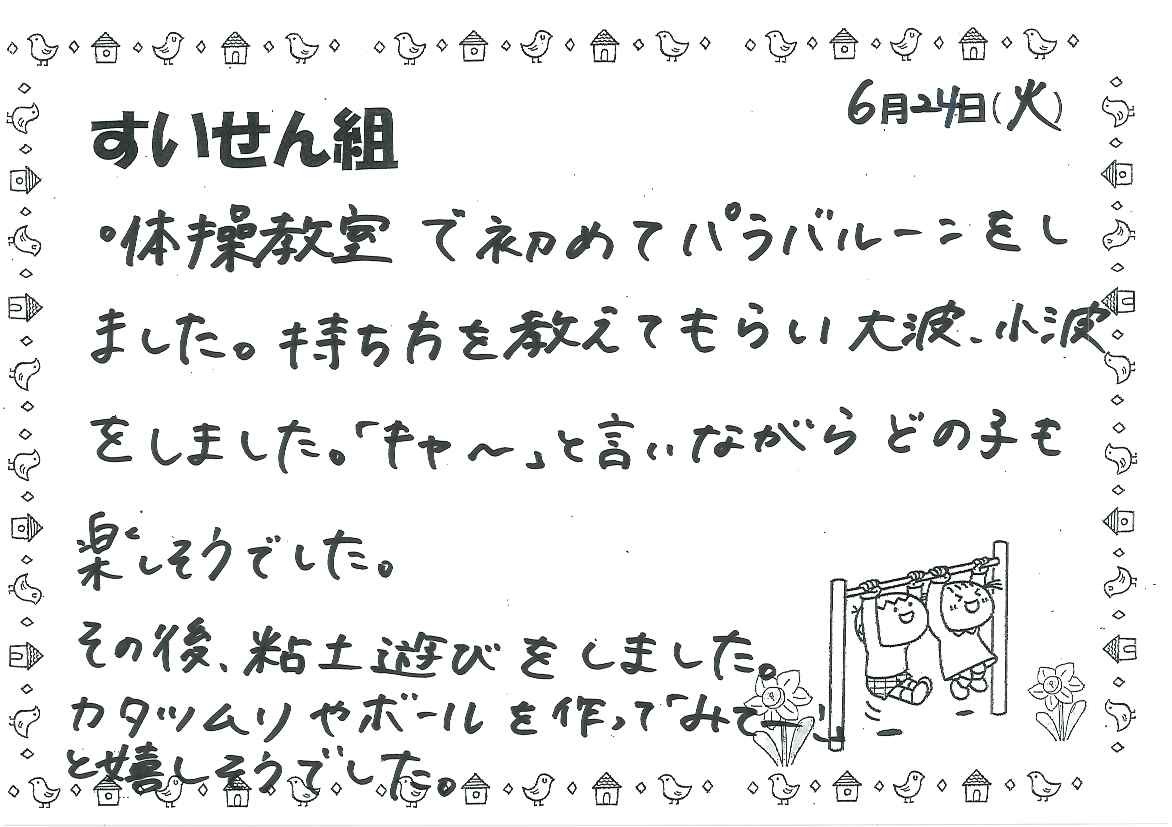 6月24日(火)
すいせん組
・体操教室で初めてパラバルーンをし
ました。持ち方を教えてもらい大波、小波
をしました。「キャ〜」と言いながらどの子も
楽しそうでした。
その後、粘土遊びをしました。
カタツムリやボールを作って「みてー」
と嬉しそうでした。